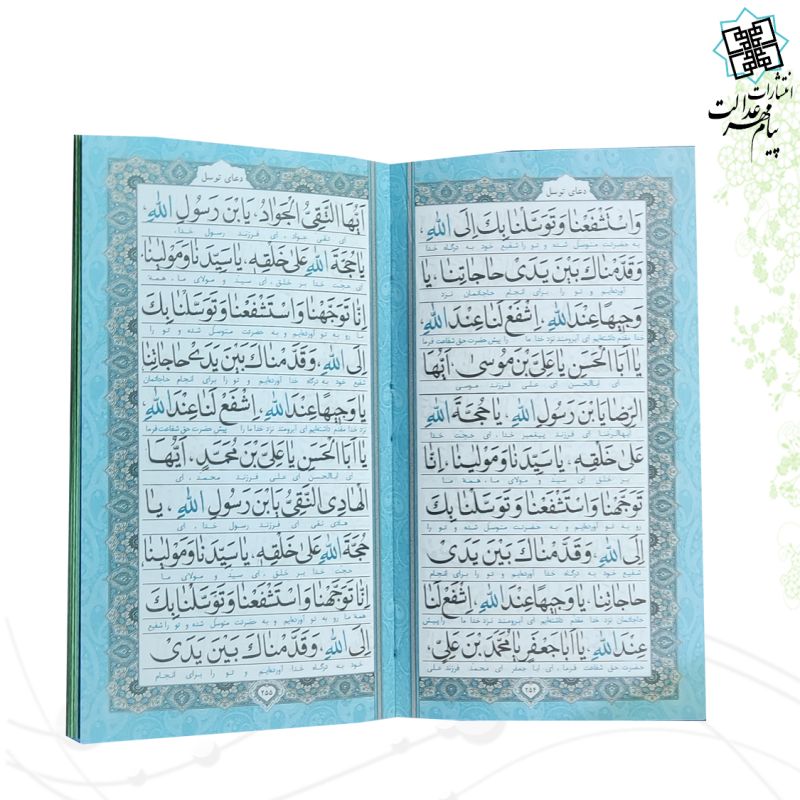 انتشارات
پیام مهر عدالت
دعای توسل
وَاسْتَشْفَعْنٰا وَتَوَسَّلْنٰا بِكَ اِلَى اللهِ،
به حضرتت متوسل شده و تو را شفیع خود به درگاه خدا
وَقَدَّمْنٰاكَ بَيْنَ يَدَىْ حٰاجٰاتِنٰا، يٰا
آورده‌ایم و تو را برای انجام حاجاتمان نزد
وَجِيهًا عِنْدَ اللهِ، اِشْفَعْ لَنٰا عِنْدَ اللهِ،
خدا مقدم داشته‌ایم ای آبرومند نزد خدا ما را پیش حضرت حق شفاعت فرما
يٰا اَبَا الْحَسَنِ يٰا عَلِىَّ بْنَ مُوسىٰ، اَيُّهَا
ای ابالحسن ای علی فرزند موسی
الرِّضٰا يَا بْنَ رَسُولِ اللهِ، يٰا حُجَّةَ اللهِ
ایهاالرضا ای فرزند پیغمبر خدا، ای حجت خدا
عَلىٰ خَلْقِهِ، يٰا سَيِّدَنٰا وَمَوْلٰينٰا، اِنّٰا
بر خلق ای سید و مولای ما، همه ما
تَوَجَّهْنٰا وَاسْتَشْفَعْنٰا وَتَوَسَّلْنٰا بِكَ
رو به تو آورده‌ایم و به حضرتت متوسل شده و تو را
اِلَى اللهِ، وَقَدَّمْنٰاكَ بَيْنَ يَدَىْ
شفیع خود به درگاه خدا آورده‌ایم و تو را برای انجام
حٰاجٰاتِنٰا، يٰا وَجِيهًا عِنْدَ اللهِ، اِشْفَعْ لَنٰا
حاجاتمان نزد خدا مقدم داشته‌ایم ای آبرومند نزد خدا ما را پیش
عِنْدَ اللهِ، يٰا اَبٰا جَعْفَرٍ يٰا مُحَمَّدَ بْنَ عَلِىٍّ،
حضرت حق شفاعت فرما، ای ابا جعفر ای محمد فرزند علی
۲۵۴
دعای توسل
اَيُّهَا التَّقِىُّ الْجَوٰادُ، يَا بْنَ رَسُولِ اللهِ،
ای تقی جواد، ای فرزند رسول خدا،
يٰا حُجَّةَ اللهِ عَلىٰ خَلْقِهِ، يٰا سَيِّدَنٰا وَمَوْلٰينٰا
ای حجت خدا بر خلق، ای سید و مولای ما، همه
اِنّٰا تَوَجَّهْنٰا وَاسْتَشْفَعْنٰا وَتَوَسَّلْنٰا بِكَ
ما رو به تو آورده‌ایم و به حضرتت متوسل شده و تو را
اِلَى اللهِ، وَقَدَّمْنٰاكَ بَيْنَ يَدَىْ حٰاجٰاتِنٰا
شفیع خود به درگاه خدا آورده‌ایم و تو را برای انجام حاجاتمان
يٰا وَجِيهًا عِنْدَ اللهِ، اِشْفَعْ لَنٰا عِنْدَ اللهِ
نزد خدا مقدم داشته‌ایم ای آبرومند نزد خدا ما را پیش حضرت حق شفاعت فرما
يٰا اَبَا الْحَسَنِ يٰا عَلِىَّ بْنَ مُحَمَّدٍ، اَيُّهَا
ای ابالحسن ای علی فرزند محمد
الْهٰادِى النَّقِىُّ يَا بْنَ رَسُولِ اللهِ، يٰا
هادی نقی ای فرزند رسول خدا، ای
حُجَّةَ اللهِ عَلىٰ خَلْقِهِ، يٰا سَيِّدَنٰا وَمَوْلٰينٰا
حجت خدا بر خلق، ای سید و مولای ما
اِنّٰا تَوَجَّهْنٰا وَاسْتَشْفَعْنٰا وَتَوَسَّلْنٰا بِكَ
همه ما رو به تو آورده‌ایم و به حضرتت متوسل شده و تو را شفیع
اِلَى اللهِ، وَقَدَّمْنٰاكَ بَيْنَ يَدَىْ
خود به درگاه خدا آورده‌ایم و تو را برای انجام
۲۵۵